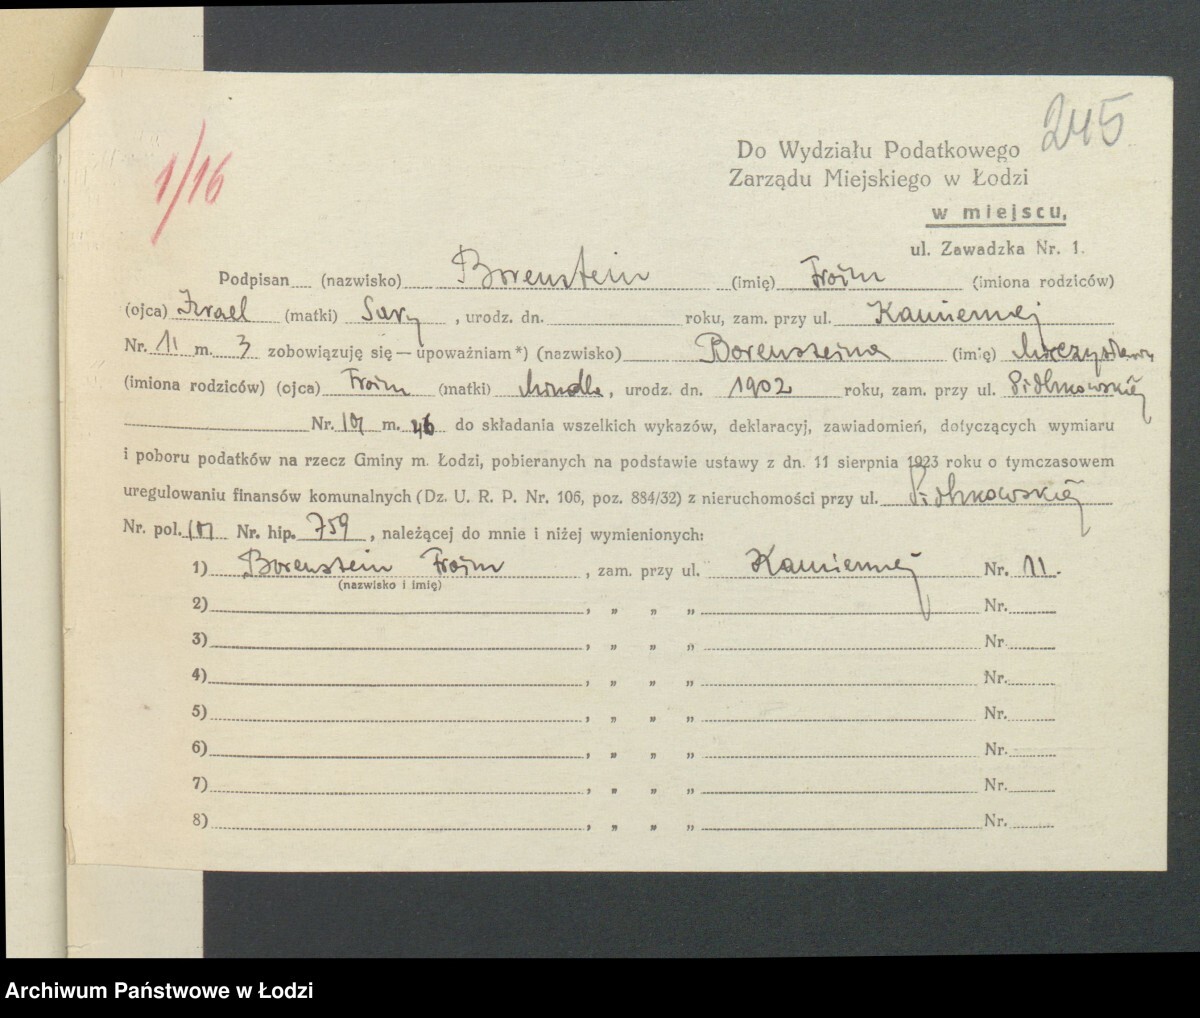 245
1/16
Do Wydziału Podatkowego
Zarządu Miejskiego w Łodzi
w miejscu,
ul. Zawadzka Nr. 1.
Podpisan (nazwisko) Borenstein (imię) Froim (imiona rodziców)
(ojca) Izrael (matki) Sury, urodz. dn. roku, zam. przy ul. Kamiennej
Nr. 11 m. 3 zobowiązuję się — upoważniam *) (nazwisko) Borensteina (imię)
(imiona rodziców) (ojca) Froim (matki) Mindla, urodz. dn. 1902 roku, zam. przy ul.
Nr. 101 m. 46 do składania wszelkich wykazów, deklaracyj, zawiadomień, dotyczących wymiaru
i poboru podatków na rzecz Gminy m. Łodzi, pobieranych na podstawie ustawy z dn. 11 sierpnia 1923 roku o tymczasowem
uregulowaniu finansów komunalnych (Dz. U. R. P. Nr. 106, poz. 884/32) z nieruchomości przy ul.
Nr. pol. 101 Nr. hip. 759, należącej do mnie i niżej wymienionych:
1) Borenstein Froim, zam. przy ul. Kamiennej Nr. 11.
(nazwisko i imię)
2) , „ „ „ Nr.
3) , „ „ „ Nr.
4) , „ „ „ Nr.
5) , „ „ „ Nr.
6) , „ „ „ Nr.
7) , „ „ „ Nr.
8) , „ „ „ Nr.
Archiwum Państwowe w Łodzi